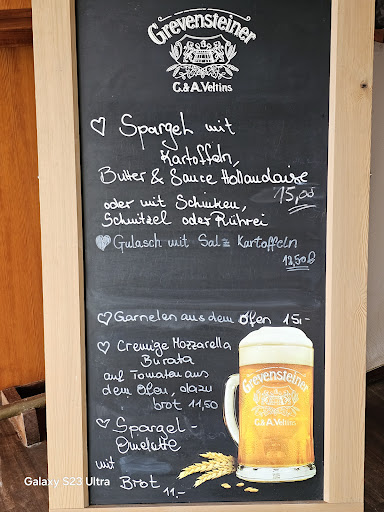 Grevensteiner
C.&A. Veltins
Spargel mit
Kartoffeln,
Butter & Sauce Hollandaise
15,00
oder mit Schinken,
Schnitzel oder Rührei
Gulasch mit Salz Kartoffeln
12,50
Garnelen aus dem Ofen 15,-
Cremige Mozzarella
Burata
auf Tomaten aus
dem Ofen, dazu
Brot 11,50
Spargel-
Omelette
mit
Brot 11,-
Grevensteiner
C.&A. Veltins
Galaxy S23 Ultra